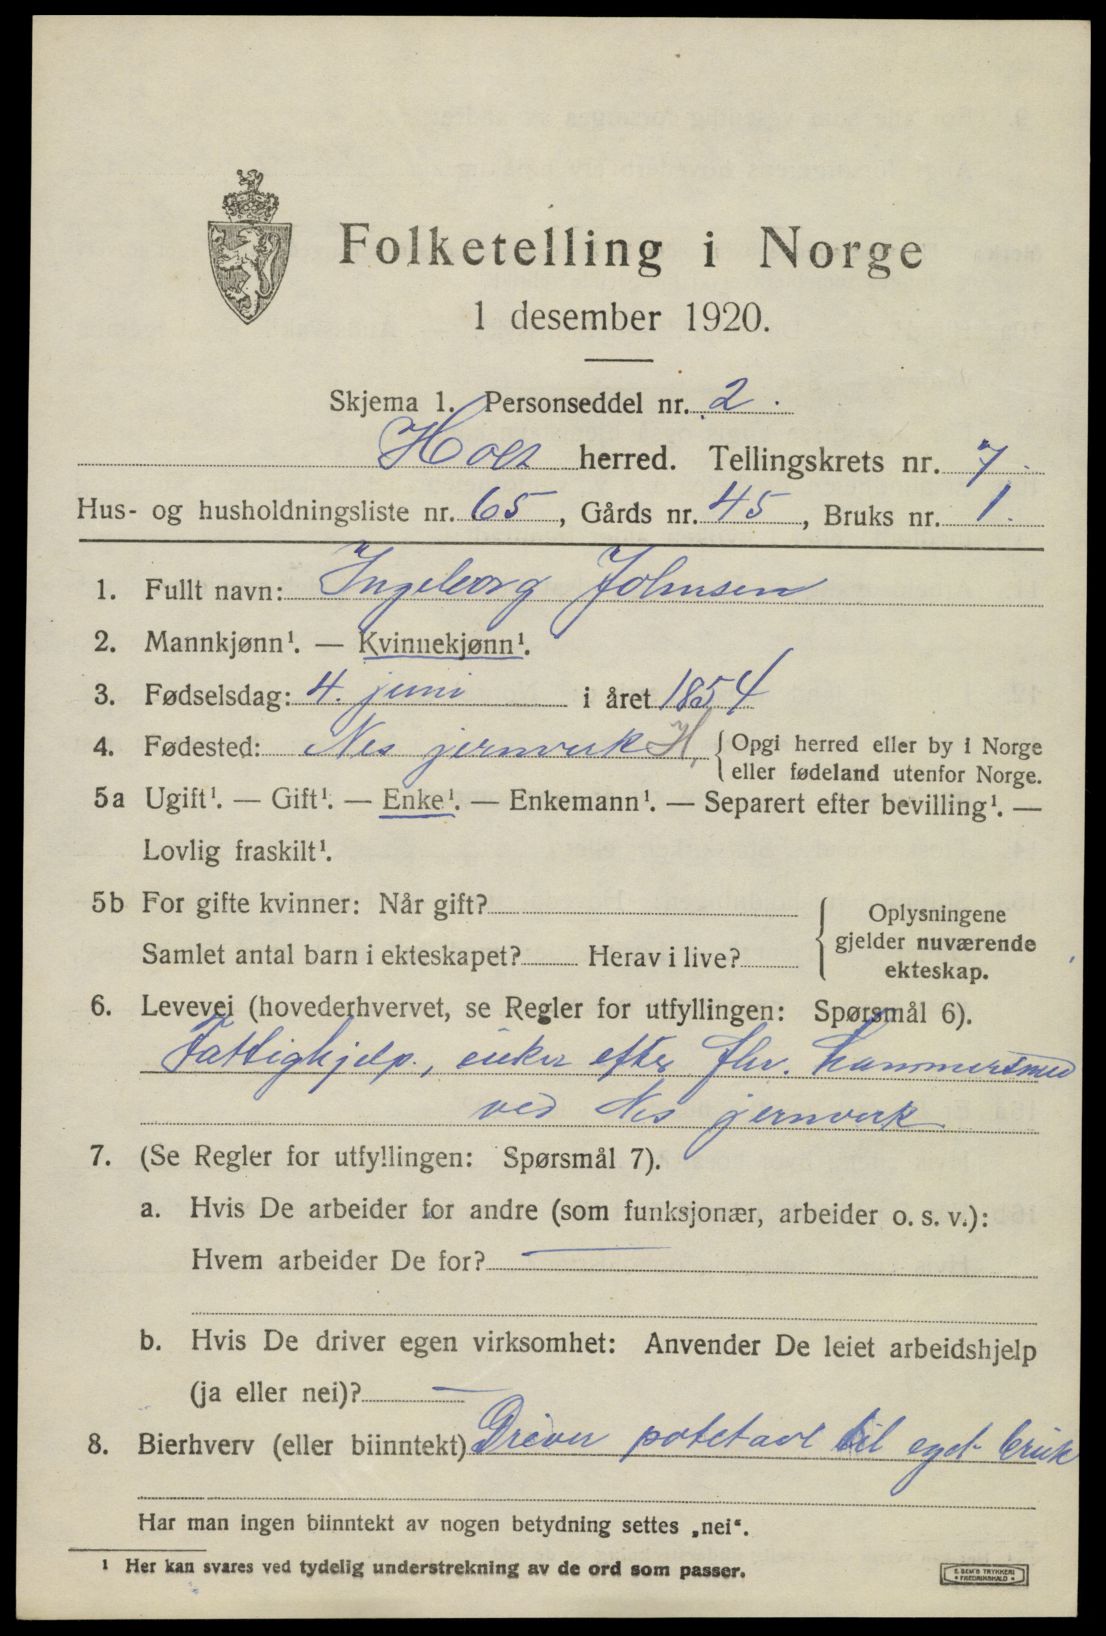 Folketelling i Norge
1 desember 1920.
Skjema 1. Personseddel nr. 2.
Holt herred. Tellingskrets nr. 7.
Hus- og husholdningsliste nr. 65, Gårds nr. 45, Bruks nr. 1.
1. Fullt navn: Ingeborg Johnsen
2. Mannkjønn¹. — Kvinnekjønn¹.
3. Fødselsdag: 4. juni i året 1854
4. Fødested: Nes jernverk H, { Opgi herred eller by i Norge
eller fødeland utenfor Norge.
5a Ugift¹. — Gift¹. — Enke¹. — Enkemann¹. — Separert efter bevilling¹. —
Lovlig fraskilt¹.
5b For gifte kvinner: Når gift?
Samlet antal barn i ekteskapet? Herav i live?
{ Oplysningene
gjelder nuværende
ekteskap.
6. Levevei (hovederhvervet, se Regler for utfyllingen: Spørsmål 6).
Fattighjelp, enke efter fhv. hammersmed
ved Nes jernverk
7. (Se Regler for utfyllingen: Spørsmål 7).
a. Hvis De arbeider for andre (som funksjonær, arbeider o. s. v.):
Hvem arbeider De for? —
b. Hvis De driver egen virksomhet: Anvender De leiet arbeidshjelp
(ja eller nei)? —
8. Bierhverv (eller biinntekt) Driver potetavl til eget bruk
Har man ingen biinntekt av nogen betydning settes „nei“.
¹ Her kan svares ved tydelig understrekning av de ord som passer.
E. SEM'S TRYKKERI
• FREDRIKSHALD •